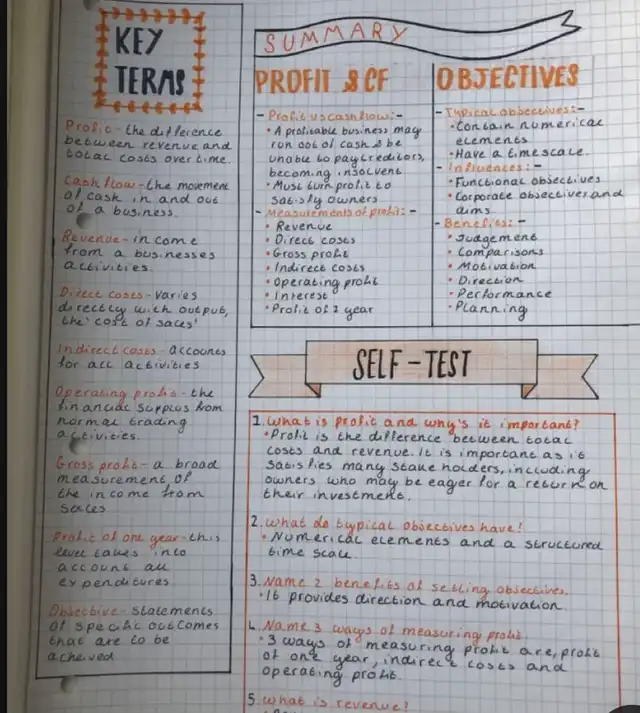 KEY
TERMS
Profit - the difference
between revenue and
total costs over time.
Cash flow - the movement
of cash in and out
of a business.
Revenue - income
from a businesses
activities.
Direct costs - varies
directly with output,
the 'cost of sales'
Indirect costs - accounts
for all activities
Operating profit - the
financial surplus from
normal trading
activities.
Gross profit - a broad
measurement of
the income from
sales
Profit of one year - this
level takes into
account all
expenditures.
Objective - statements
of specific outcomes
that are to be
acheived
SUMMARY
PROFIT & CF
- Profit vs cash flow:-
• A profitable business may
run out of cash & be
unable to pay creditors,
becoming insolvent
• Must turn profit to
satisfy owners
- Measurements of profit:-
• Revenue
• Direct costs
• Gross profit
• Indirect costs
• Operating profit
• Interest
• Profit of 1 year
OBJECTIVES
- Typical objectives:-
• Contain numerical
elements
• Have a timescale.
- Influences:-
• Functional objectives
• Corporate objectives and
aims
- Benefits:-
• Judgement
• Comparisons
• Motivation
• Direction
• Performance
• Planning
SELF-TEST
1. What is profit and why's it important?
• Profit is the difference between total
costs and revenue. It is important as it
satisfies many stake holders, including
owners who may be eager for a return on
their investment.
2. What do typical objectives have?
• Numerical elements and a structured
time scale.
3. Name 2 benefits of setting objectives.
• It provides direction and motivation.
4. Name 3 ways of measuring profit
• 3 ways of measuring profit are, profit
of one year, indirect costs and
operating profit.
5. What is revenue?